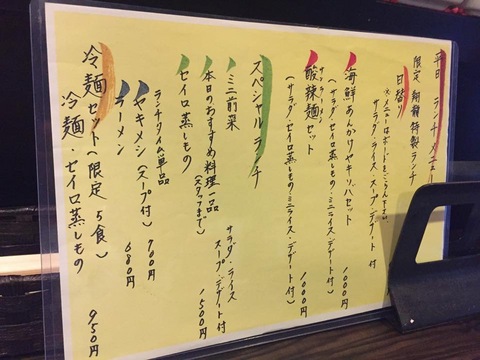 平日 ランチメニュー
限定 翔龍特製ランチ
日替り
※メニューはボードをごらん下さい
サラダ・ライス・スープ・デザート付
海鮮あんかけヤキソバセット 1000円
(サラダ・セイロ蒸しもの・ミニライス・デザート付)
酸辣麺セット 1000円
(サラダ・セイロ蒸しもの・ミニライス・デザート付)
スペシャルランチ
ミニ前菜 サラダ・ライス
本日のおすすめ料理一品 スープ・デザート付
(スタッフまで)
セイロ蒸しもの 1500円
ランチタイム単品
ヤキメシ(スープ付) 700円
ラーメン 680円
冷麺セット(限定5食)
冷麺・セイロ蒸しもの 950円